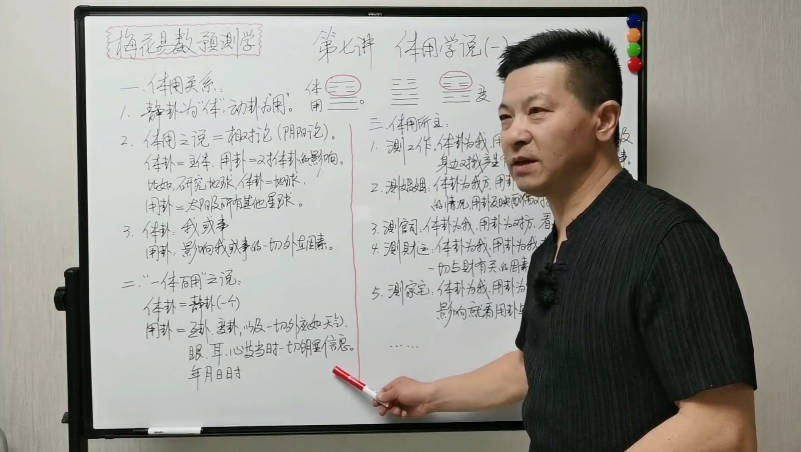 梅花易数预测学
第七讲 体用学说(一)
一、体用关系:
1. 静卦为“体”,动卦为“用”。
2. 体用之说=相对论(阴阳论)。
体卦=主体,用卦=对体卦的影响。
比如:研究地球,体卦=地球,
用卦=太阳及所有其他星球。
3. 体卦:我或事
用卦:影响我或事的一切外在因素。
二、“一体百用”之说:
体卦=静卦(一个)
用卦=互卦、变卦,以及一切外应如天气、
眼、耳、心等当时一切明显信息。
年月日时
体
用
变
三、体用所主:
1. 测工作:体卦为我,用
身边对我产生
2. 测婚姻:体卦为我方,用卦
的情况,用卦
3. 测官司:体卦为我,用卦为对方,看
4. 测财运:体卦为我,用卦为
一切与财有关的因素
5. 测家宅:体卦为我,用卦为
影响 就看用卦与
……